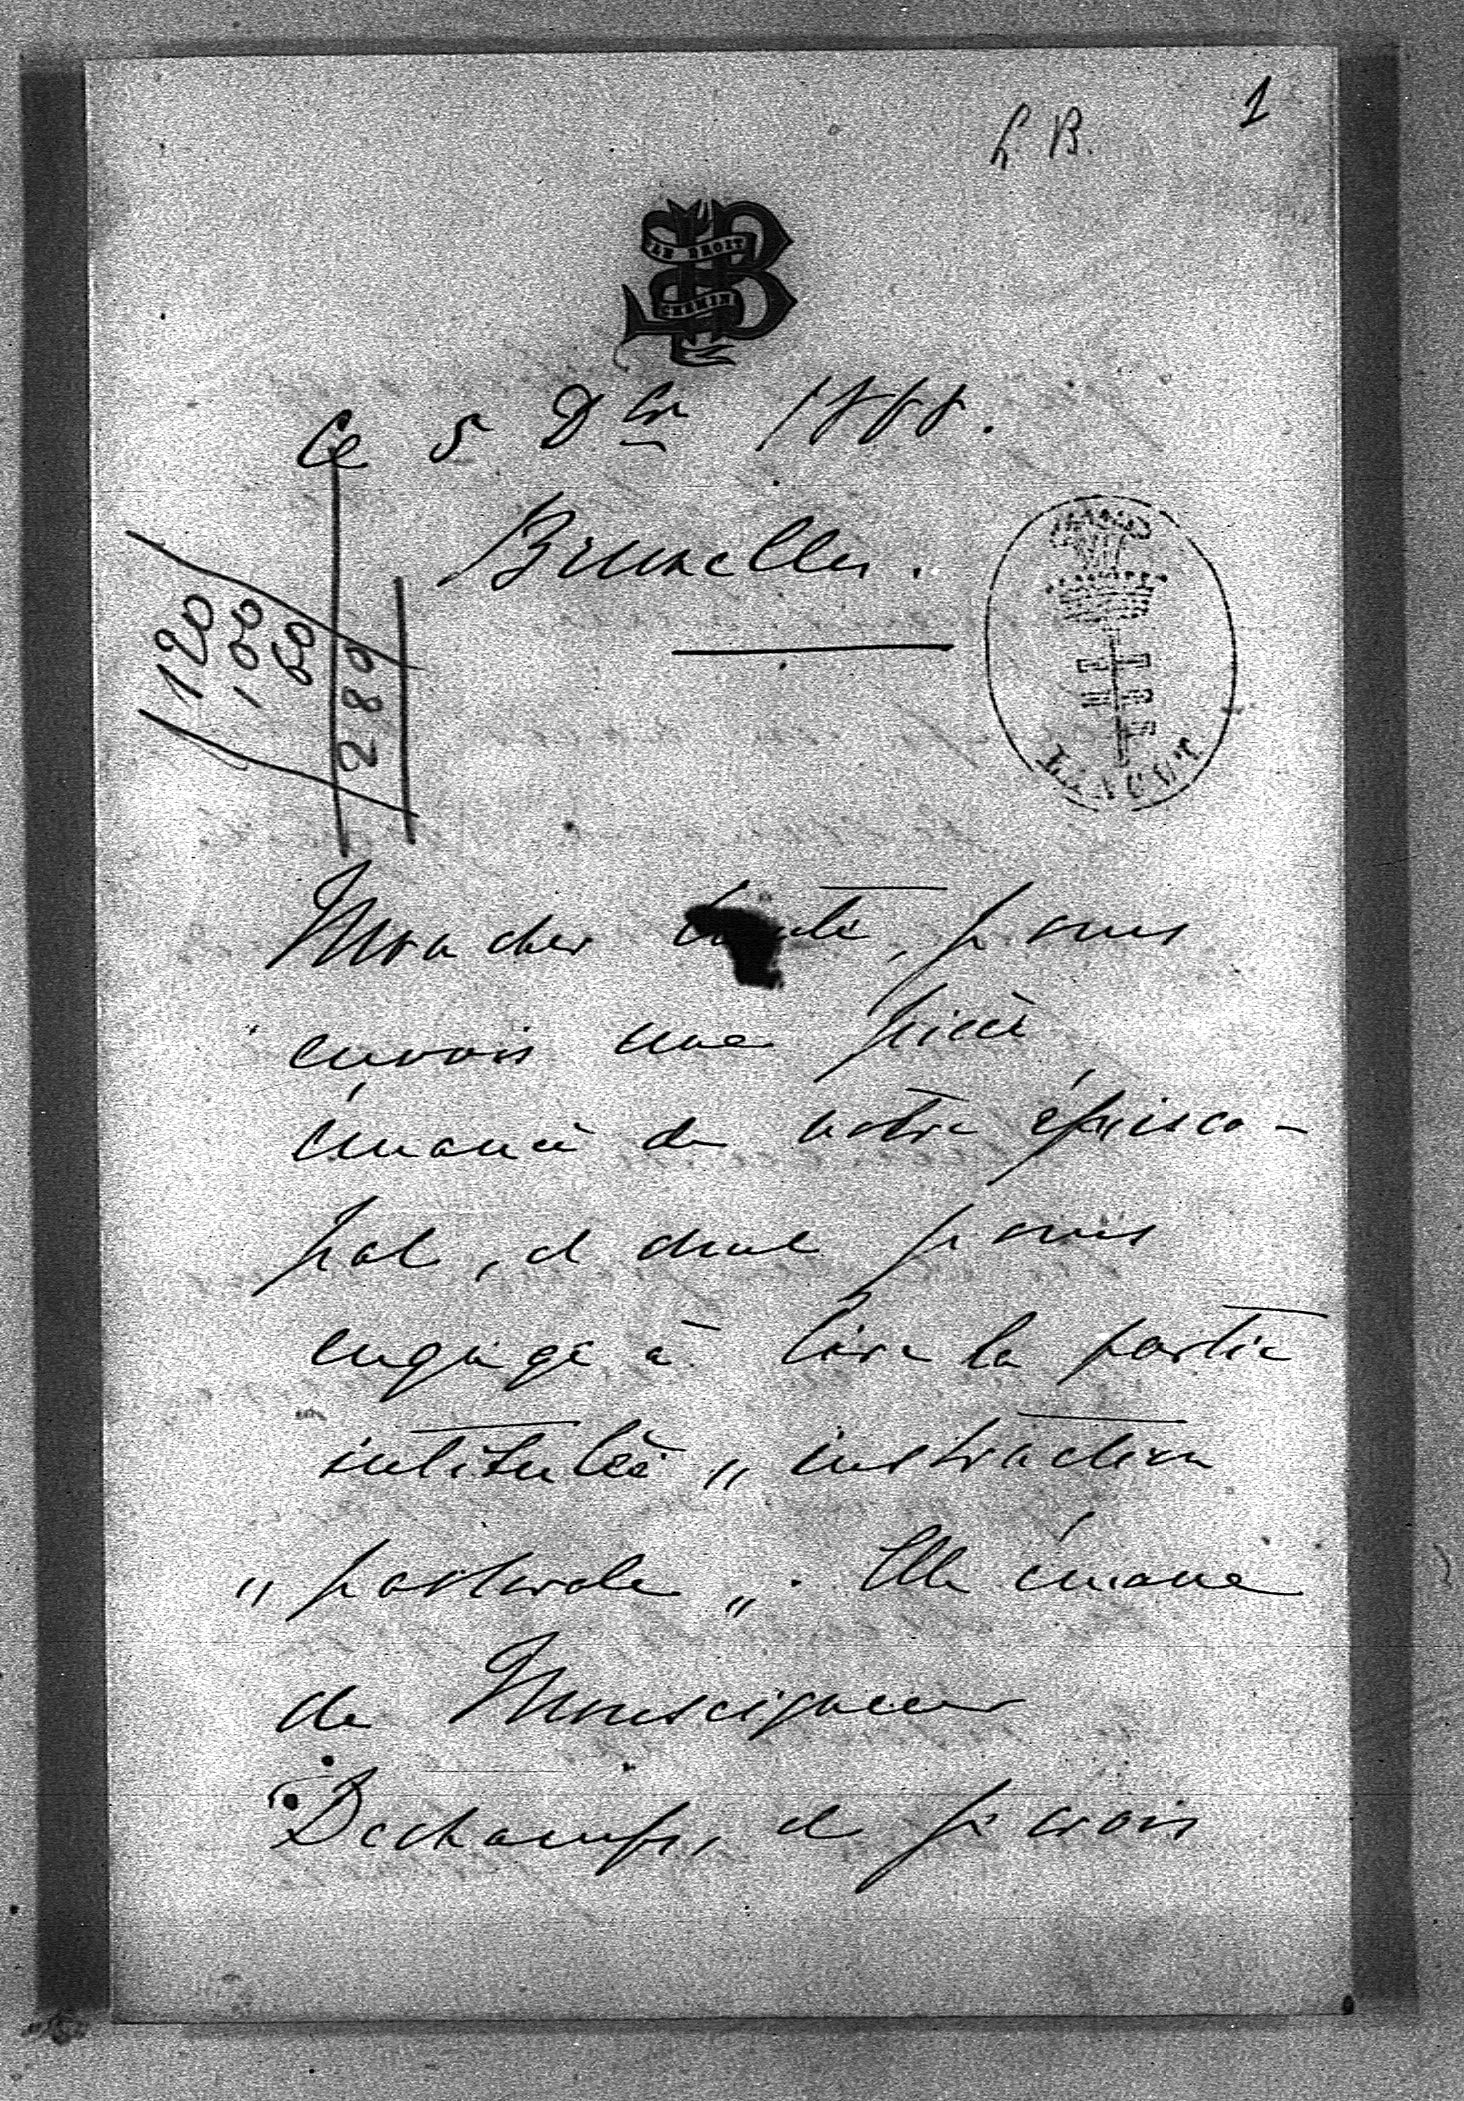 1
L. B.
LE DROIT
CHEMIN
Ce 5 Dbre 1888.
Bruxelles.
120
100
60
280
Mon cher Comte, je vous
envois une pièce
émanée de notre épisco-
pat, et dont je vous
engage à lire la partie
intitulée „ instruction
„ pastorale „. Elle émane
de Monseigneur
Dechamps, et je crois